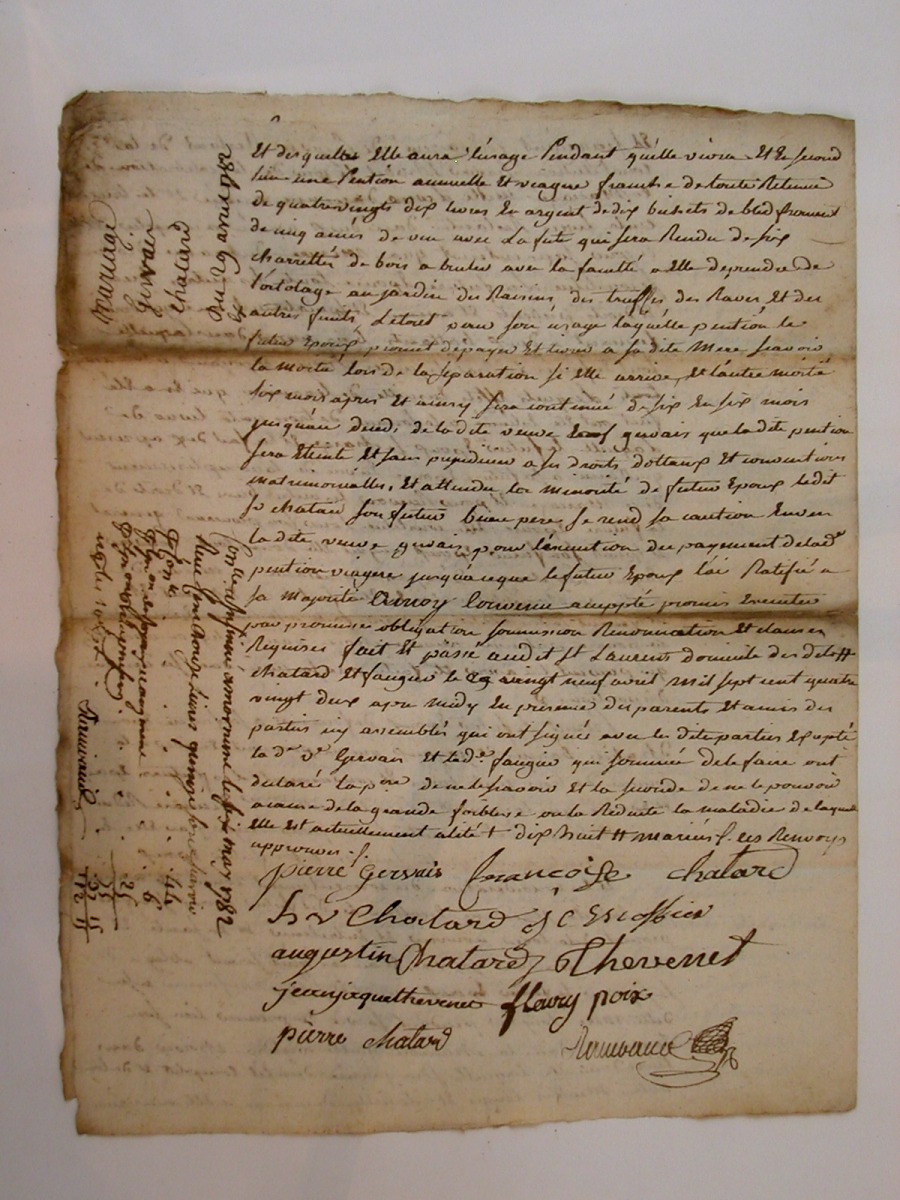 Et desquelles Elle aura l'usage Pendant qu'elle vivra Et En second
lieu une Pention annuelle Et viagere franche de toute Retenue
de quatrevingts dix livres En argent de dix bichets de bled froment
de cinq anées de vin avec La fute qui sera Rendu de six
charrettés de bois a bruler avec la faculté a Elle de prendre de
l'ortolage au jardin des Raisins, des truffes des Raves Et des
autres fruits, Letout pour son usage laquelle pention le
futur Epoux promet de payer Et livrer a sa dite Mere scavoir
la moitié lors de la separation si elle arrive, Et l'autre moitié
six mois apres Et ainsy sera continué de six En six mois
jusqu'au deceds de la dite veuve gervais que la dite pention
sera Eteinte Et sans prejudicier a ses droits dottaux Et conventions
matrimonialles, Et attendu la minorité du futur Epoux ledit
sr chatard son futur beau pere se rend sa caution Envers
la dite veuve gervais pour l'execution du payement de lad.e
pention viagere jusqu'a ce que le futur Epoux l'ai Ratifié a
sa majorité Ainsy convenu accepté promis Executer
par promesses obligation soumission Renonciation Et clauses
Requises fait Et passé audit St Laurent domicile desdits
chatard Et faugier le vingt neuf avril Mil sept cent quatre
vingt deux apres midy En presence des parents Et amis des
parties icy assemblés qui ont signés avec les dites parties Excepté
la d.e v.e Gervais Et lad.e faugier qui sommées de le faire ont
declarés la p.ere de ne le scavoir Et la seconde de ne le pouvoir
acause de la grande foiblesse ou la Reduite la maladie de laquelle
Elle est actuellement alité dix huit les Renvoys
approuvés
pierre Gervais françoise chatard
Chatard
augustin Chatard Thevenet
jeanjaquethevenet fleury poix
pierre chatard
mariage
gervais
chatard
29 avril 1782
may 1782
44
6